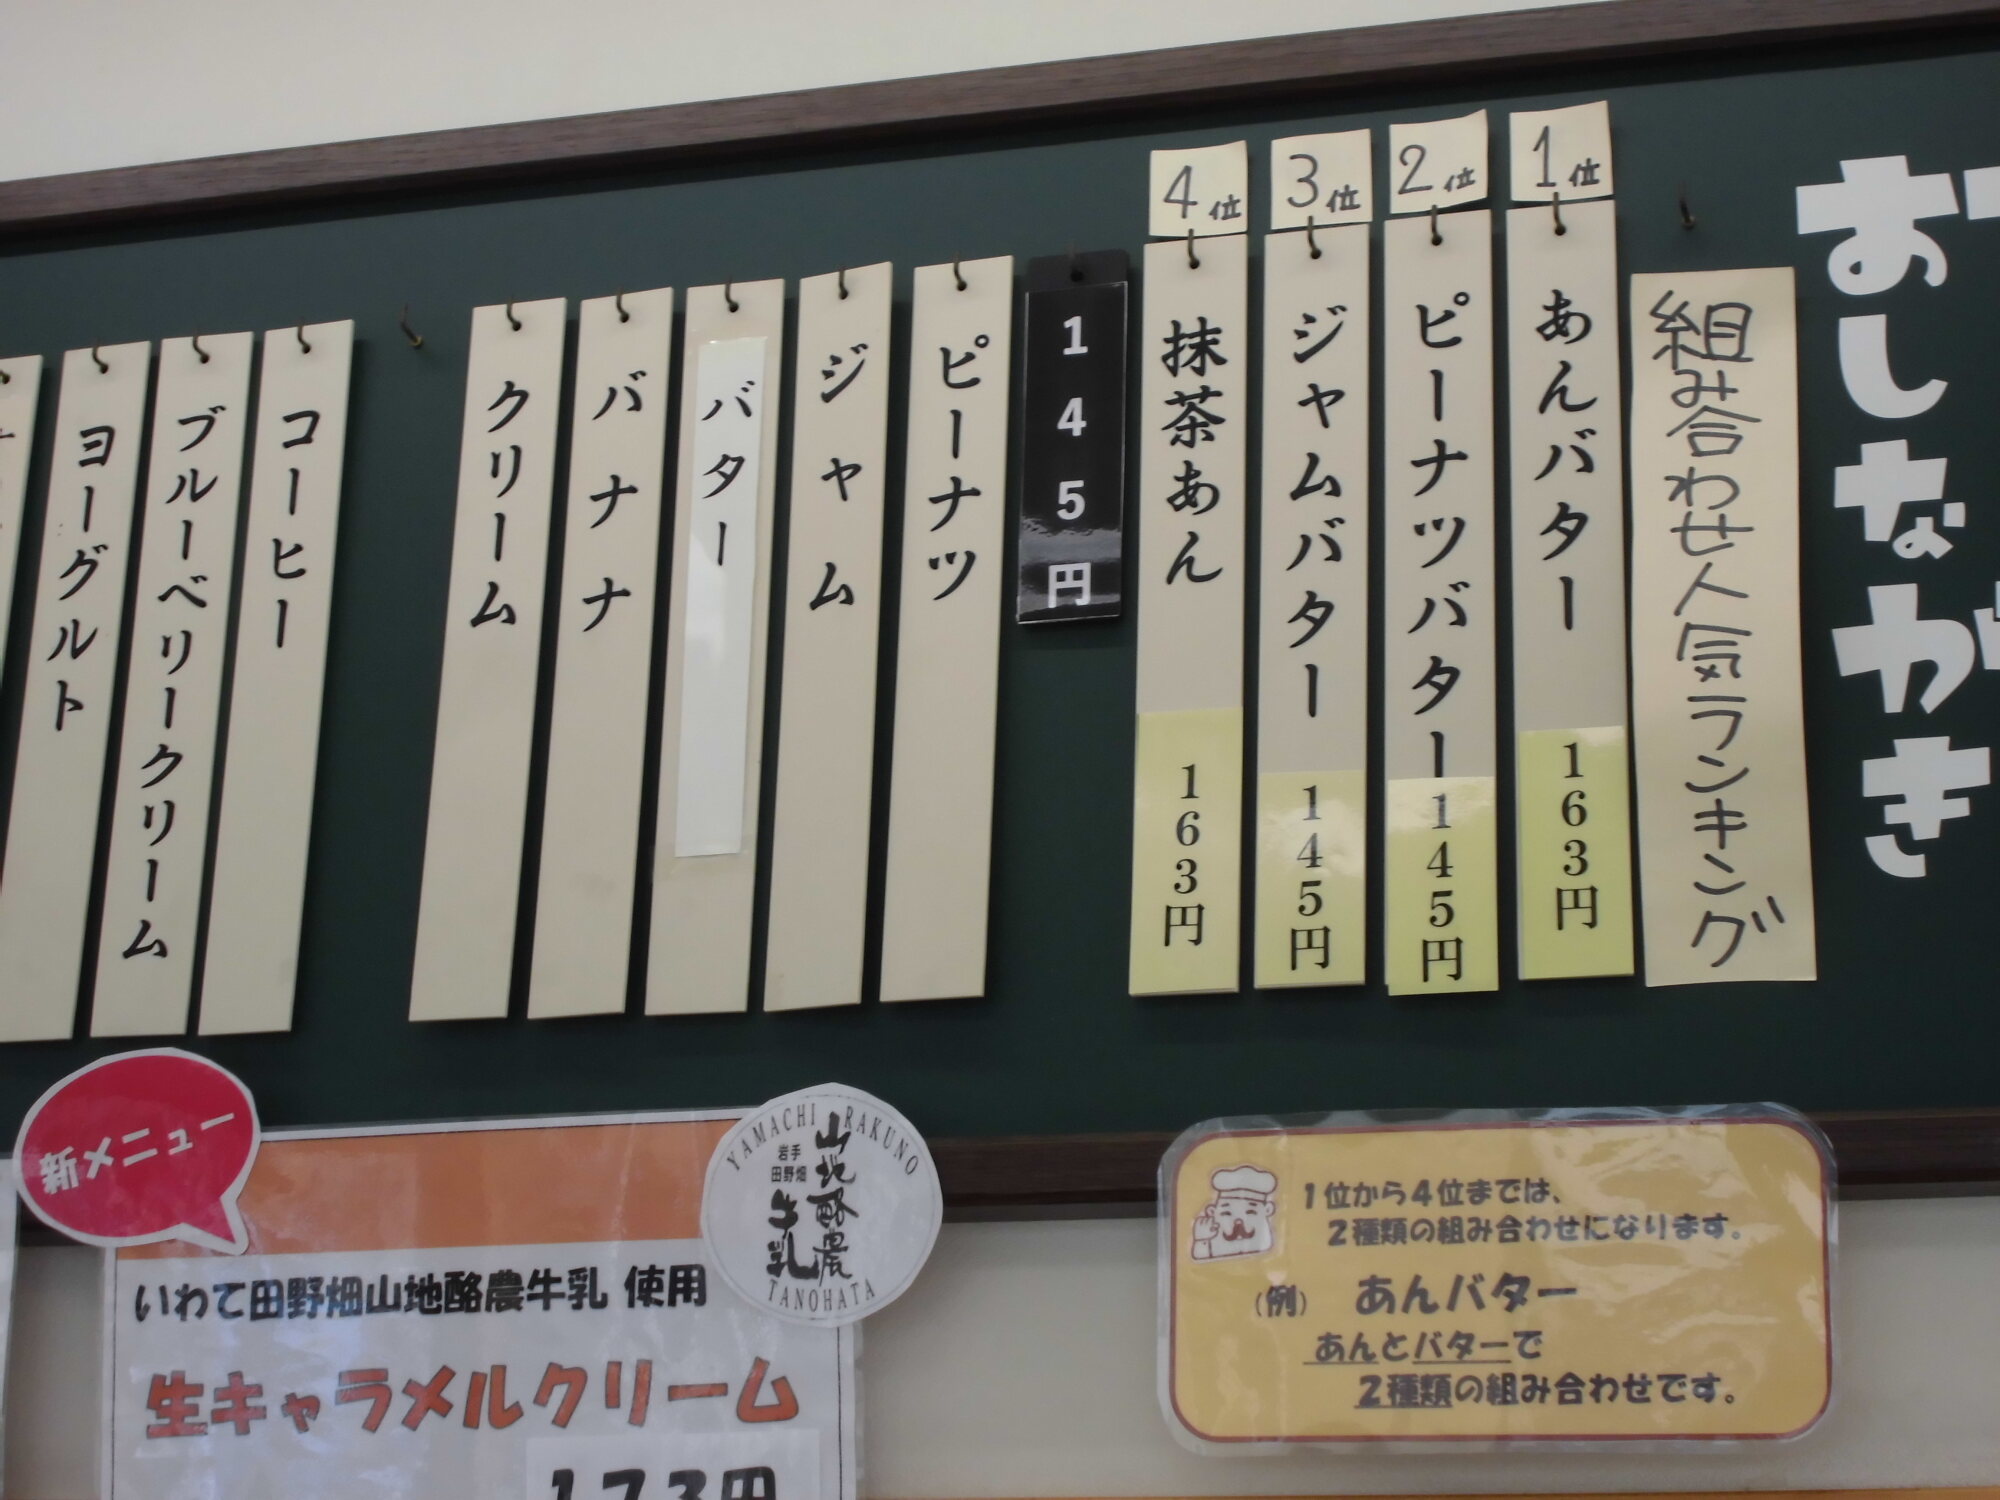 おしながき
組み合わせ人気ランキング
1位
あんバター
163円
2位
ピーナツバター
145円
3位
ジャムバター
145円
4位
抹茶あん
163円
145円
ピーナツ
ジャム
バター
バナナ
クリーム
コーヒー
ブルーベリークリーム
ヨーグルト
新メニュー
いわて田野畑山地酪農牛乳 使用
生キャラメルクリーム
173円
YAMACHI RAKUNO
岩手
田野畑
山地酪農
牛乳
TANOHATA
1位から4位までは、
2種類の組み合わせになります。
(例) あんバター
あんとバターで
2種類の組み合わせです。